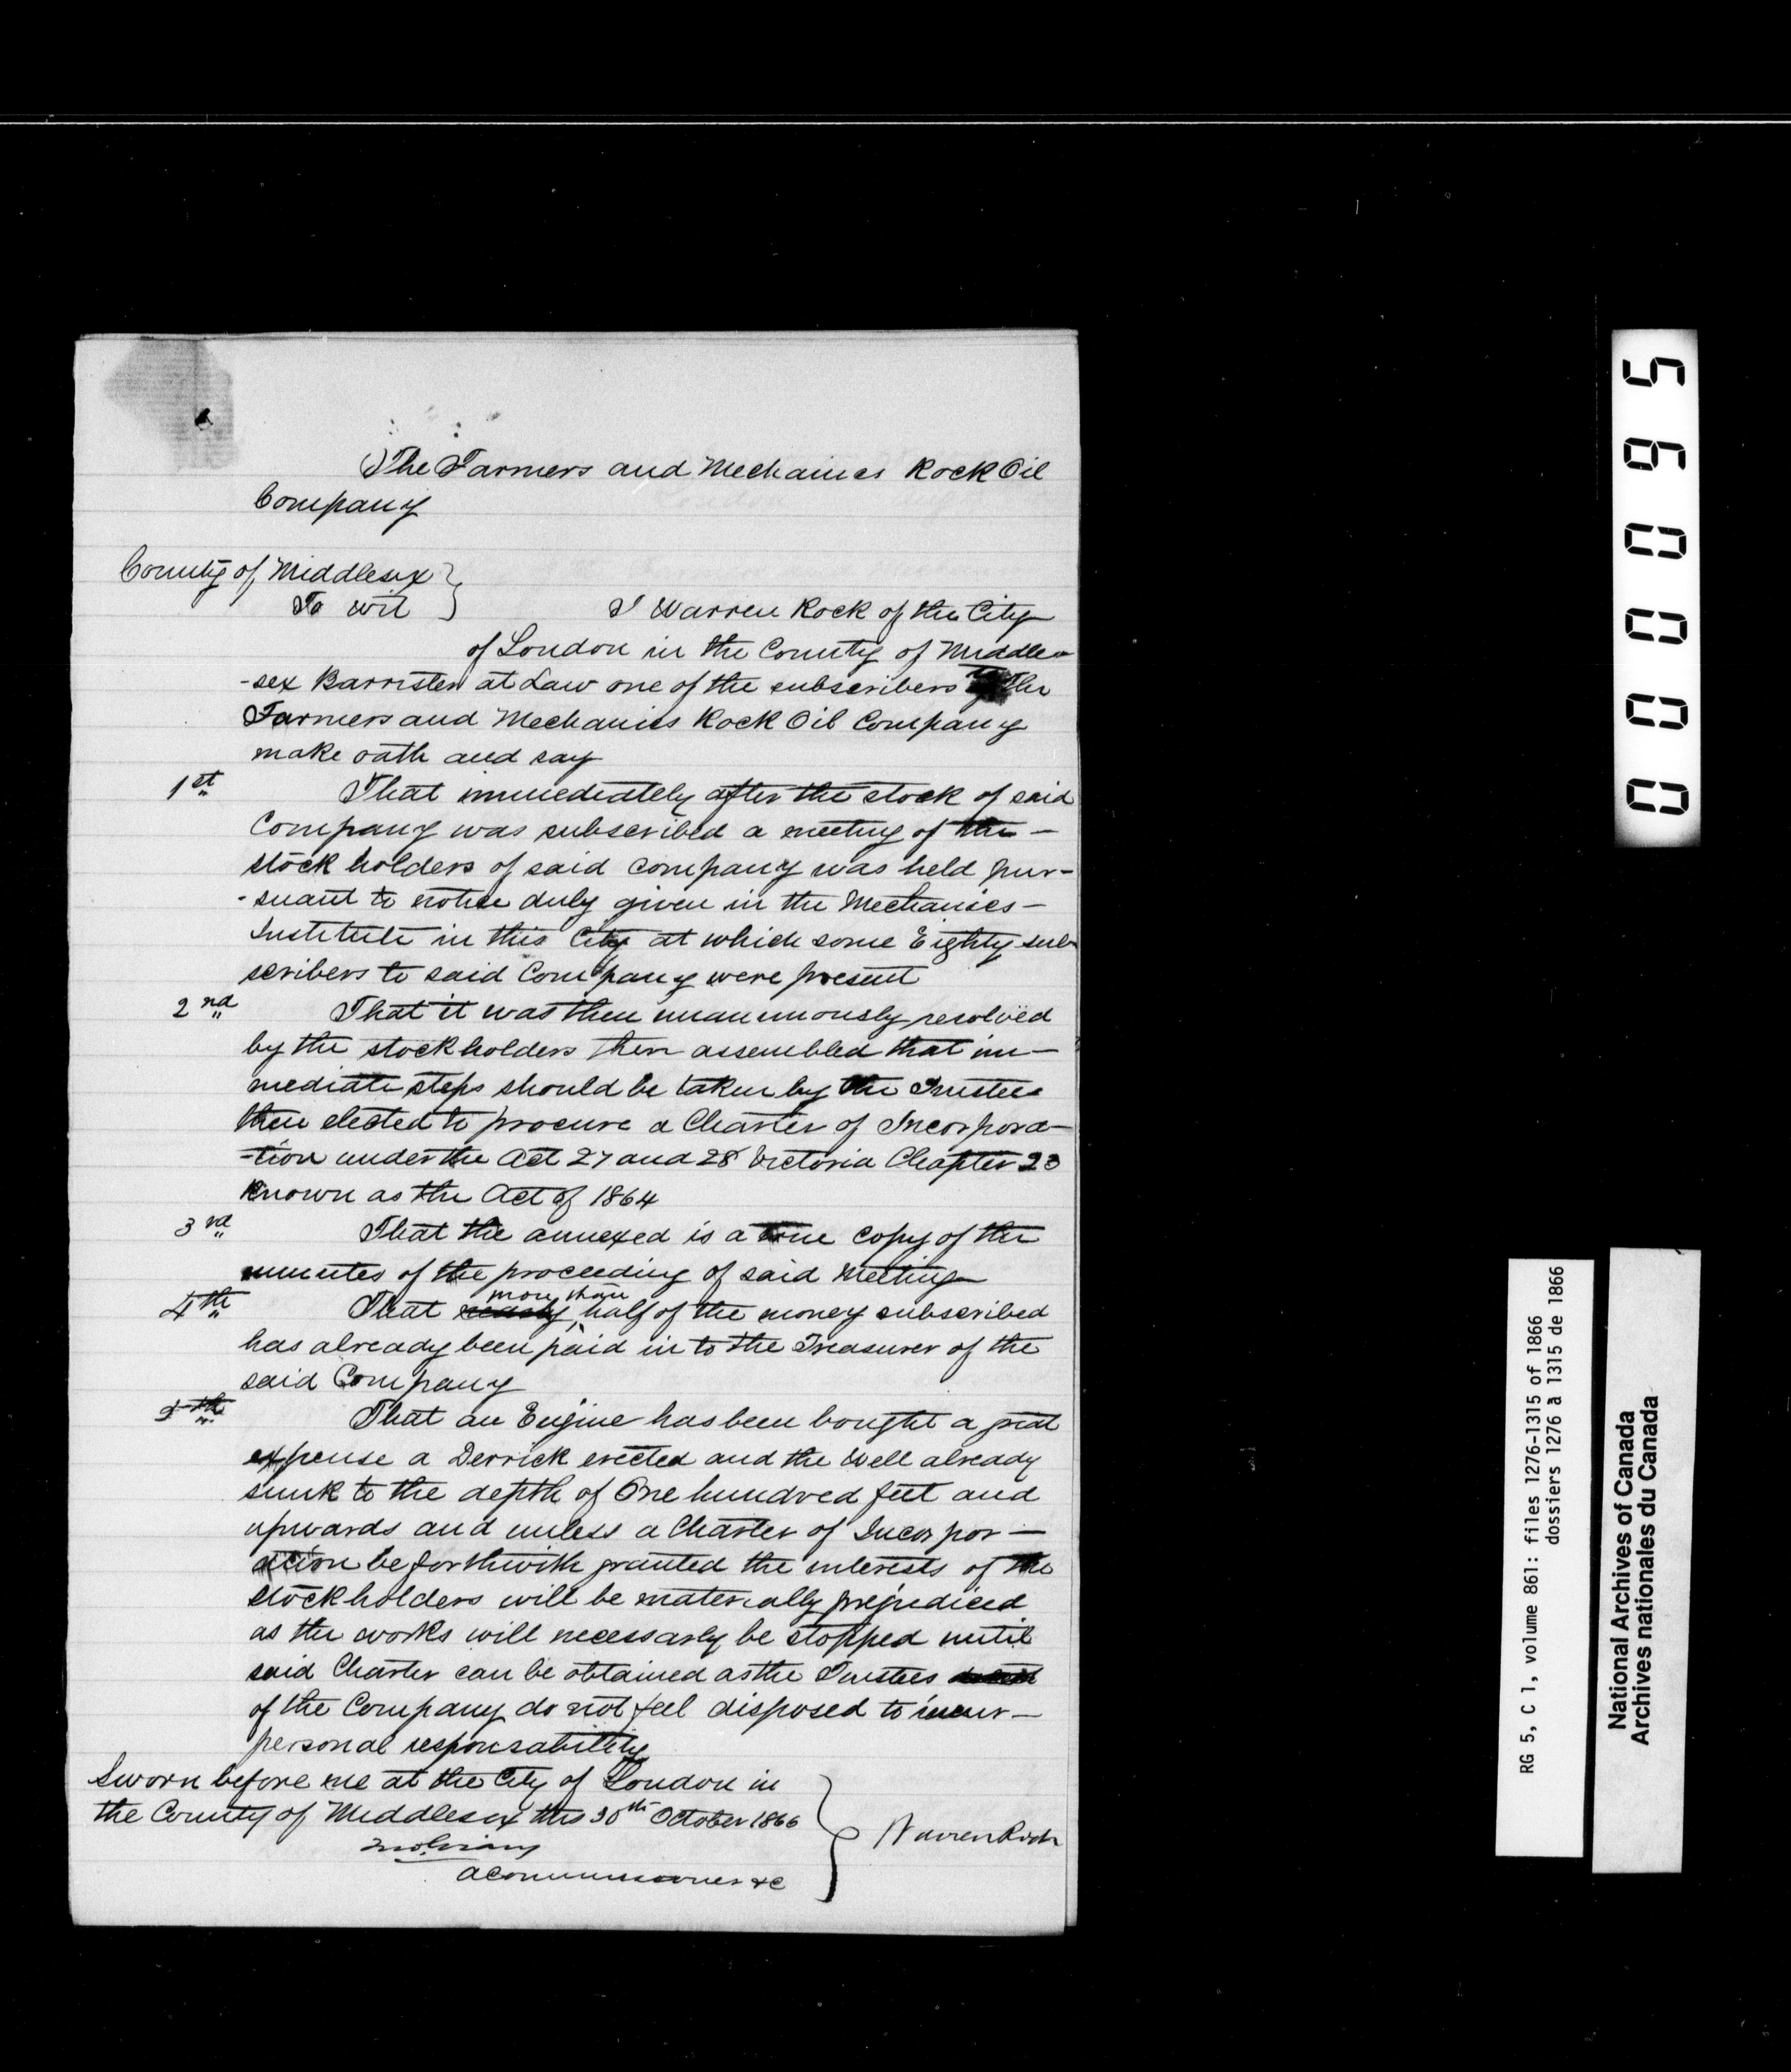 The Farmers and Mechanics Rock Oil
Company
County of Middlesex
To wit } I Warren Rock of the City
of London in the County of Middle-
-sex Barrister at Law one of the subscribers to the
Farmers and Mechanics Rock Oil Company
make oath and say
1st That immediately after the stock of said
Company was subscribed a meeting of the -
stock holders of said company was held pur-
-suant to notice duly given in the Mechanics -
Institute in this City at which some Eighty sub-
scribers to said Company were present
2nd That it was then unanimously resolved
by the stockholders then assembled that im-
mediate steps should be taken by the Trustees
then elected to procure a Charter of Incorpora-
-tion under the Act 27 and 28 Victoria Chapter 23
Known as the Act of 1864
3rd That the annexed is a true copy of the
minutes of the proceeding of said Meeting
more than
4th That nearly half of the money subscribed
has already been paid in to the Treasurer of the
said Company
5th That an Engine has been bought a great
expense a Derrick erected and the Well already
sunk to the depth of One hundred feet and
upwards and unless a Charter of Incorpor-
ation be forthwith granted the interests of the
stockholders will be materially prejudiced
as the works will necessarly be stopped until
said Charter can be obtained as the Trustees
of the Company do not feel disposed to incur -
personal responsability
Sworn before me at the City of London in
the County of Middlesex this 30th October 1866
Warren Rock
A Commissioner &c
000095
RG 5, C 1, volume 861: files 1276-1315 of 1866
dossiers 1276 à 1315 de 1866
National Archives of Canada
Archives nationales du Canada